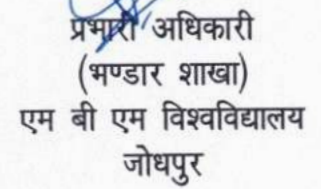 प्रभारी अधिकारी
(भण्डार शाखा)
एम बी एम विश्वविद्यालय
जोधपुर